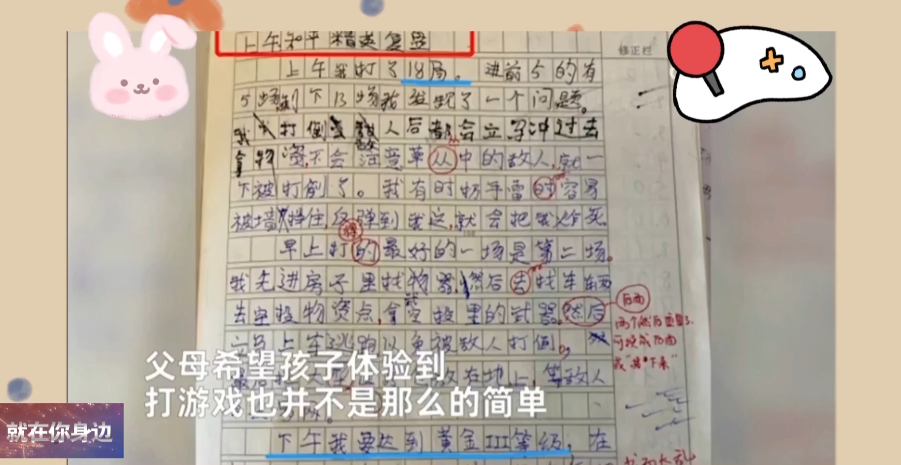 上午和平精英复盘
修正栏
上午我打了18局。进前5的有
5场剩下13场我发现了一个问题。
我打倒敌人后都会立马冲过去
拿物资,不会注意草从中的敌人,就一
下被打倒了。我有时扔手雷时容易
被墙挡住,反弹到我这,就会把我炸死
早上打的最好的一场是第二场。
得
我先进房子里找物器,然后去找车辆
去空投物资点,拿空投里的武器,然后
后面
马上车逃跑以免被敌人打倒。
两个然后重复了,
可换成后面
或"接下来"
在地上 等敌人
父母希望孩子体验到
打游戏也并不是那么的简单
就在你身边
下午我要达到黄金III等级,在